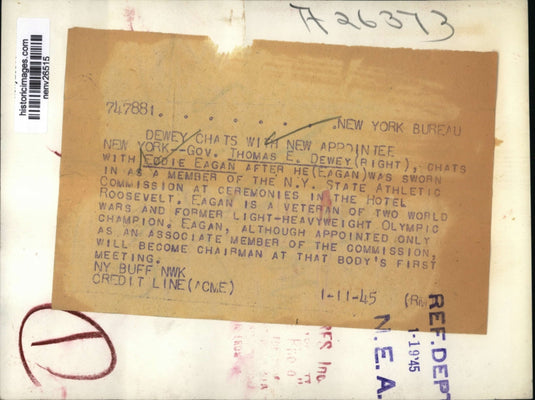 A26373
historicimages.com
nenv26515
747881. . . . . . . . .NEW YORK BUREAU
DEWEY CHATS WITH NEW APPOINTEE
NEW YORK--GOV. THOMAS E. DEWEY(RIGHT), CHATS
WITH EDDIE EAGAN AFTER HE(EAGAN)WAS SWORN
IN AS A MEMBER OF THE N.Y. STATE ATHLETIC
COMMISSION AT CEREMONIES IN THE HOTEL
ROOSEVELT. EAGAN IS A VETERAN OF TWO WORLD
WARS AND FORMER LIGHT-HEAVYWEIGHT OLYMPIC
CHAMPION. EAGAN, ALTHOUGH APPOINTED ONLY
AS AN ASSOCIATE MEMBER OF THE COMMISSION,
WILL BECOME CHAIRMAN AT THAT BODY'S FIRST
MEETING.
NY BUFF NWK
CREDIT LINE(ACME) 1-11-45
REF. DEPT
1-1945
N.E.A.
Inc.
1